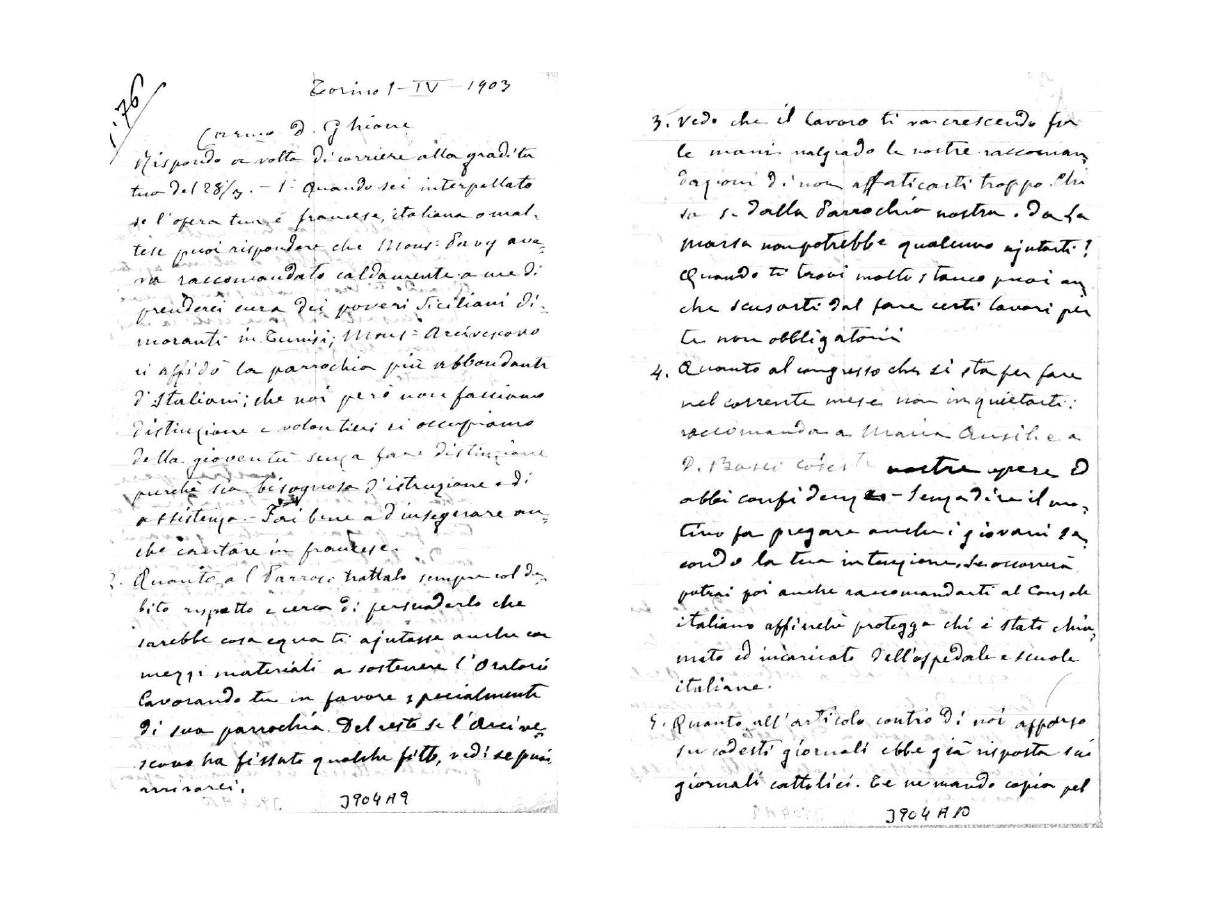 176
Torino 1-IV-1903
Car.mo D. Ghione
Rispondo a volta di corriere alla gradita
tua del 28/3. - 1° Quando sei interpellato
se l'opera tua è francese, italiana o mal-
tese puoi rispondere che Mons: Pavy ave-
va raccomandato caldamente a me di
prenderci cura dei poveri Siciliani di-
moranti in Tunisi; Mons: Arcivescovo
ci affidò la parrochia più abbondante
d'Italiani; che noi però non facciamo
distinzione e volontieri ci occupiamo
della gioventù senza fare distinzione
purchè sia bisognosa d'istruzione e di
assistenza. Fai bene ad insegnare an-
che cantare in francese.
2. Quanto al Parroco trattalo sempre col de-
bito rispetto e cerca di persuaderlo che
sarebbe cosa equa ti ajutasse anche con
mezzi materiali a sostenere l'Oratorio
lavorando tu in favore specialmente
di sua parrochia. Del resto se l'Arcive-
scovo ha fissato qualche fitto, vedi se puoi
arrivarci.
J904A9
3. Vedo che il lavoro ti va crescendo fra
le mani malgrado le nostre raccoman-
dazioni di non affaticarti troppo. Chi
sa se dalla Parrochia nostra, da La
Marsa non potrebbe qualcuno ajutarti?
Quando ti trovi molto stanco puoi an-
che scusarti dal fare certi lavori per
te non obbligatorii
4. Quanto al congresso che si sta per fare
nel corrente mese non inquietarti:
raccomanda a Maria Ausil. e a
D. Bosco coteste nostre opere ed
abbi confidenza - Senza dire il mo-
tivo fa pregare anche i giovani se-
condo la tua intenzione. Se occorrerà
potrai poi anche raccomandarti al Console
italiano affinchè protegga chi è stato chia-
mato ed incaricato dell'ospedale e scuole
italiane.
5. Quanto all'articolo contro di noi apparso
su codesti giornali ebbe già risposta sui
giornali cattolici. Te ne mando copia pel
J904A10